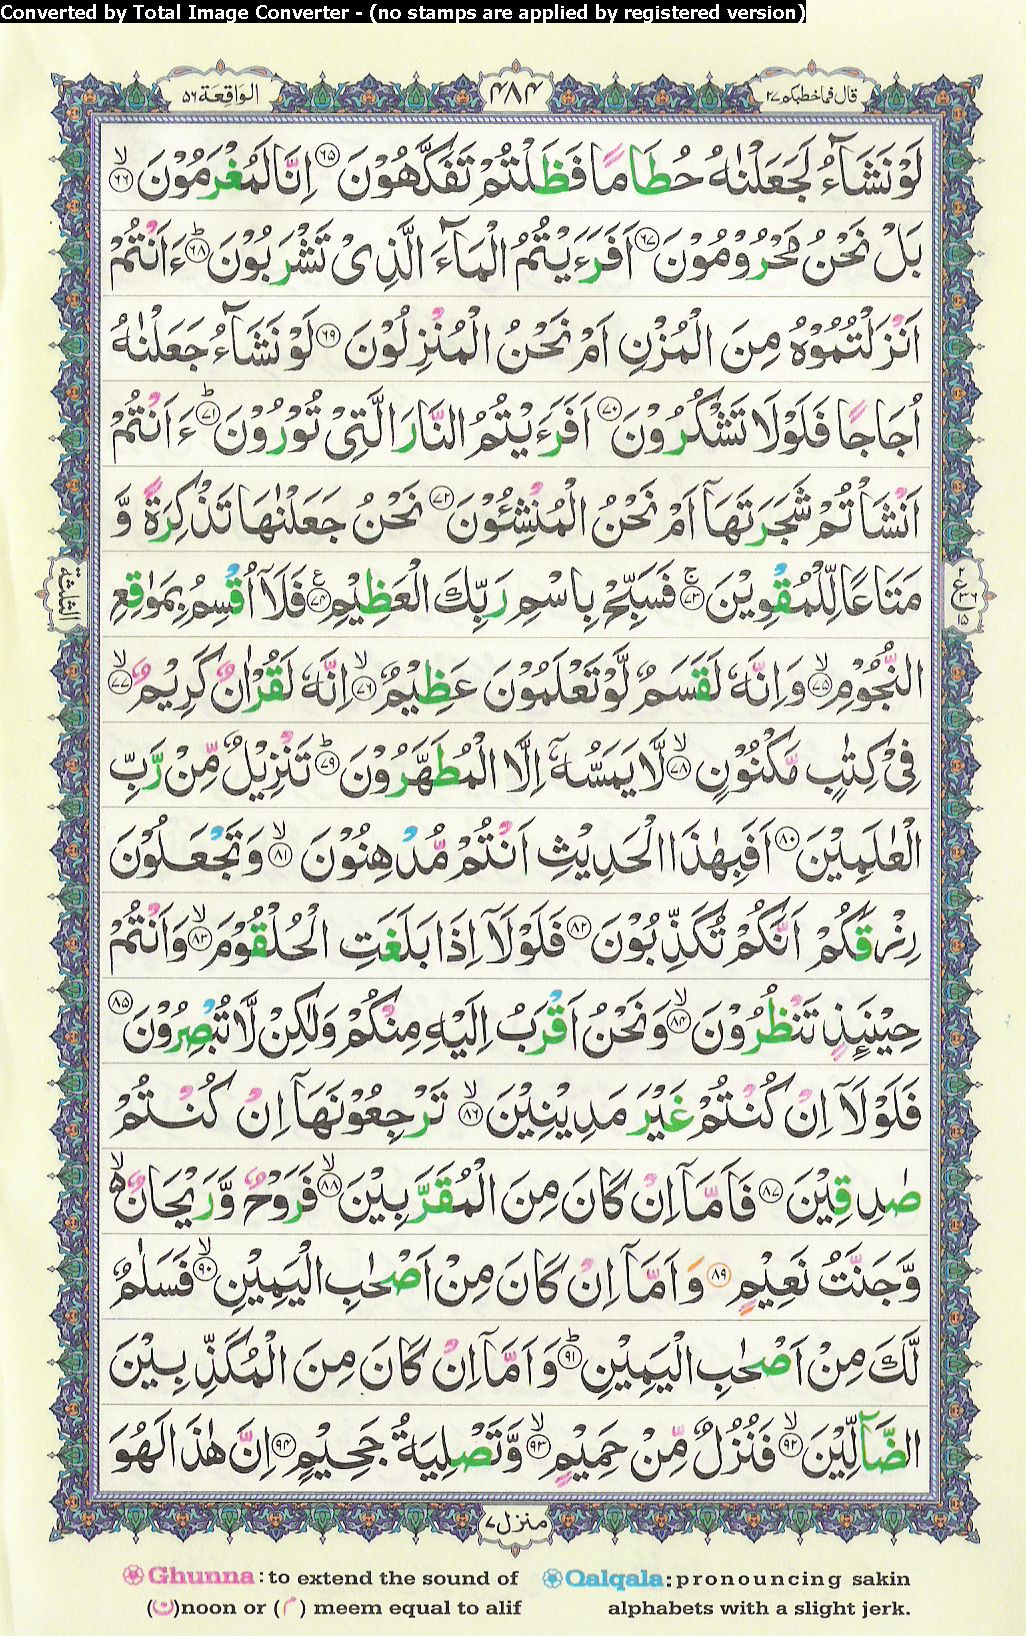 Converted by Total Image Converter - (no stamps are applied by registered version)
قال فما خطبكم ٢٧
٤٨٤
الواقعة ٥٦
لَوْ نَشَآءُ لَجَعَلْنٰهُ حُطَامًا فَظَلْتُمْ تَفَكَّهُوْنَ ﴿۶۵﴾ اِنَّا لَمُغْرَمُوْنَ ﴿ۙ۶۶﴾
بَلْ نَحْنُ مَحْرُوْمُوْنَ ﴿۶۷﴾ اَفَرَءَيْتُمُ الْمَآءَ الَّذِىْ تَشْرَبُوْنَ ﴿ؕ۶۸﴾ ءَاَنْتُمْ
اَنْزَلْتُمُوْهُ مِنَ الْمُزْنِ اَمْ نَحْنُ الْمُنْزِلُوْنَ ﴿۶۹﴾ لَوْ نَشَآءُ جَعَلْنٰهُ
اُجَاجًا فَلَوْلَا تَشْكُرُوْنَ ﴿۷۰﴾ اَفَرَءَيْتُمُ النَّارَ الَّتِىْ تُوْرُوْنَ ﴿ؕ۷۱﴾ ءَاَنْتُمْ
اَنْشَاْتُمْ شَجَرَتَهَاۤ اَمْ نَحْنُ الْمُنْشِئُوْنَ ﴿۷۲﴾ نَحْنُ جَعَلْنٰهَا تَذْكِرَةً وَّ
مَتَاعًا لِّلْمُقْوِيْنَ ﴿ۚ۷۳﴾ فَسَبِّحْ بِاسْمِ رَبِّكَ الْعَظِيْمِ ﴿۷۴﴾ فَلَاۤ اُقْسِمُ بِمَوٰقِعِ
النُّجُوْمِ ﴿ۙ۷۵﴾ وَاِنَّهٗ لَقَسَمٌ لَّوْ تَعْلَمُوْنَ عَظِيْمٌ ﴿ۙ۷۶﴾ اِنَّهٗ لَقُرْاٰنٌ كَرِيْمٌ ﴿ۙ۷۷﴾
فِىْ كِتٰبٍ مَّكْنُوْنٍ ﴿ۙ۷۸﴾ لَّا يَمَسُّهٗۤ اِلَّا الْمُطَهَّرُوْنَ ﴿ؕ۷۹﴾ تَنْزِيْلٌ مِّنْ رَّبِّ
الْعٰلَمِيْنَ ﴿۸۰﴾ اَفَبِهٰذَا الْحَدِيْثِ اَنْتُمْ مُّدْهِنُوْنَ ﴿ۙ۸۱﴾ وَتَجْعَلُوْنَ
رِزْقَكُمْ اَنَّكُمْ تُكَذِّبُوْنَ ﴿۸۲﴾ فَلَوْلَاۤ اِذَا بَلَغَتِ الْحُلْقُوْمَ ﴿ۙ۸۳﴾ وَاَنْتُمْ
حِيْنَئِذٍ تَنْظُرُوْنَ ﴿ۙ۸۴﴾ وَنَحْنُ اَقْرَبُ اِلَيْهِ مِنْكُمْ وَلٰكِنْ لَّا تُبْصِرُوْنَ ﴿۸۵﴾
فَلَوْلَاۤ اِنْ كُنْتُمْ غَيْرَ مَدِيْنِيْنَ ﴿ۙ۸۶﴾ تَرْجِعُوْنَهَاۤ اِنْ كُنْتُمْ
صٰدِقِيْنَ ﴿۸۷﴾ فَاَمَّاۤ اِنْ كَانَ مِنَ الْمُقَرَّبِيْنَ ﴿ۙ۸۸﴾ فَرَوْحٌ وَّرَيْحَانٌ ۙ
وَّجَنَّتُ نَعِيْمٍ ﴿۸۹﴾ وَاَمَّاۤ اِنْ كَانَ مِنْ اَصْحٰبِ الْيَمِيْنِ ﴿ۙ۹۰﴾ فَسَلٰمٌ
لَّكَ مِنْ اَصْحٰبِ الْيَمِيْنِ ﴿ؕ۹۱﴾ وَاَمَّاۤ اِنْ كَانَ مِنَ الْمُكَذِّبِيْنَ
الضَّآلِّيْنَ ﴿ۙ۹۲﴾ فَنُزُلٌ مِّنْ حَمِيْمٍ ﴿ۙ۹۳﴾ وَّتَصْلِيَةُ جَحِيْمٍ ﴿۹۴﴾ اِنَّ هٰذَا لَهُوَ
٢
ع
٣٦
١٥
الثلثة
منزل ٧
Ghunna: to extend the sound of
(ن)noon or (م) meem equal to alif
Qalqala: pronouncing sakin
alphabets with a slight jerk.